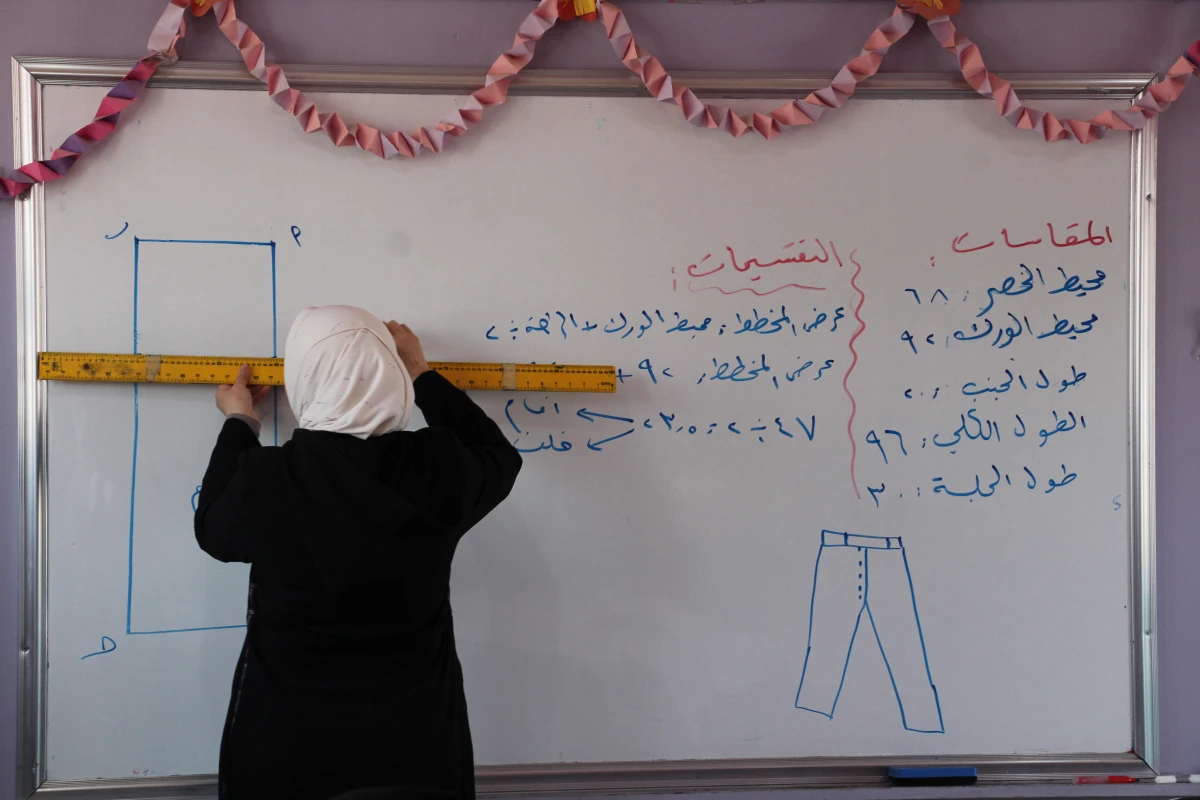 المقاسات :
محيط الخصر : ٦٨
محيط الورك : ٩٢
طول الجنب : ٢٠
الطول الكلي : ٩٦
طول الجلسة : ٣٠
التقسيمات :
عرض المخطط : محيط الورك + الراحة ÷ ٢
عرض المخطط : ٩٢ +
٤٧ ÷ ٢ = ٢٣,٥
امام
خلف